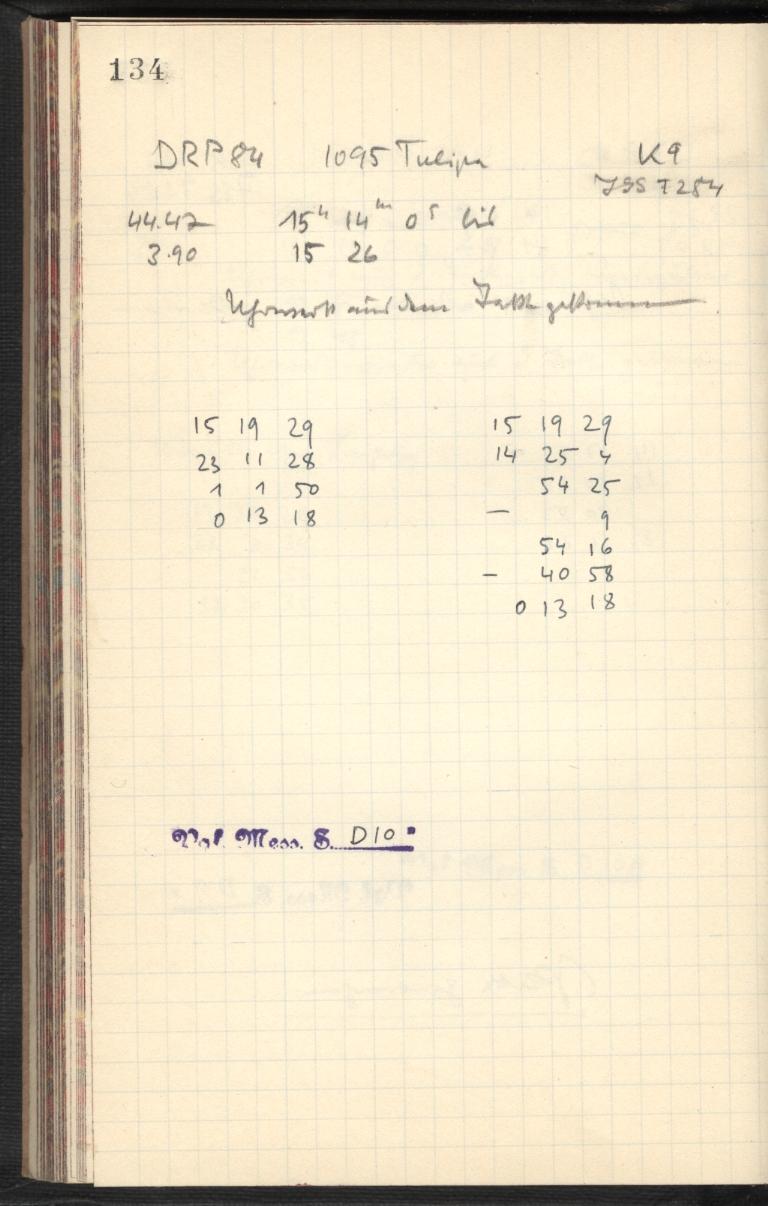 134
DRP 84 1095 Tulipa K9
44.47 15h 14m 0s bis
3.90 15 26
Uhrwerk aus dem Takt gekommen
15 19 29
23 11 28
1 1 50
0 13 18
15 19 29
14 25 4
54 25
— 9
54 16
— 40 58
0 13 18
Mess. S. D10